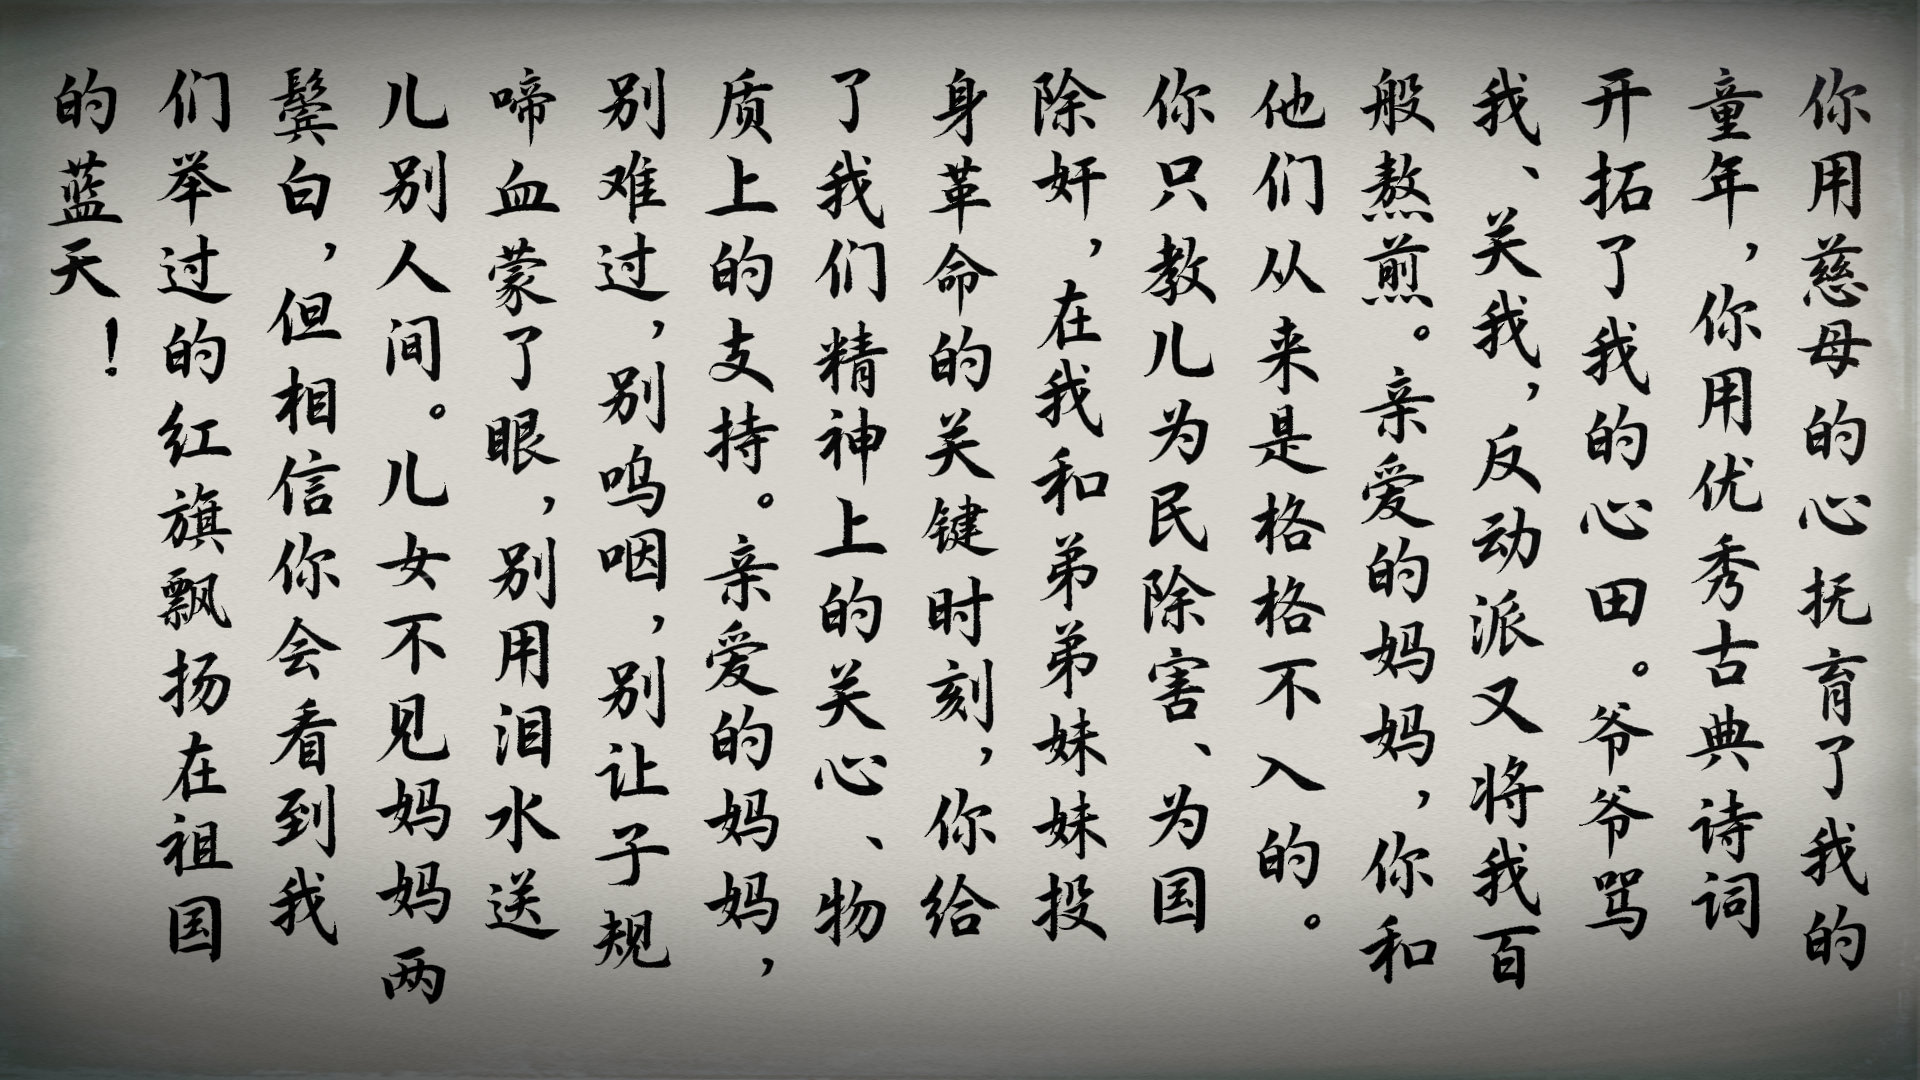 你用慈母的心抚育了我的
童年，你用优秀古典诗词
开拓了我的心田。爷爷骂
我、关我，反动派又将我百
般熬煎。亲爱的妈妈，你和
他们从来是格格不入的。
你只教儿为民除害、为国
除奸，在我和弟弟妹妹投
身革命的关键时刻，你给
了我们精神上的关心、物
质上的支持。亲爱的妈妈，
别难过，别呜咽，别让子规
啼血蒙了眼，别用泪水送
儿别人间。儿女不见妈妈两
鬓白，但相信你会看到我
们举过的红旗飘扬在祖国
的蓝天！